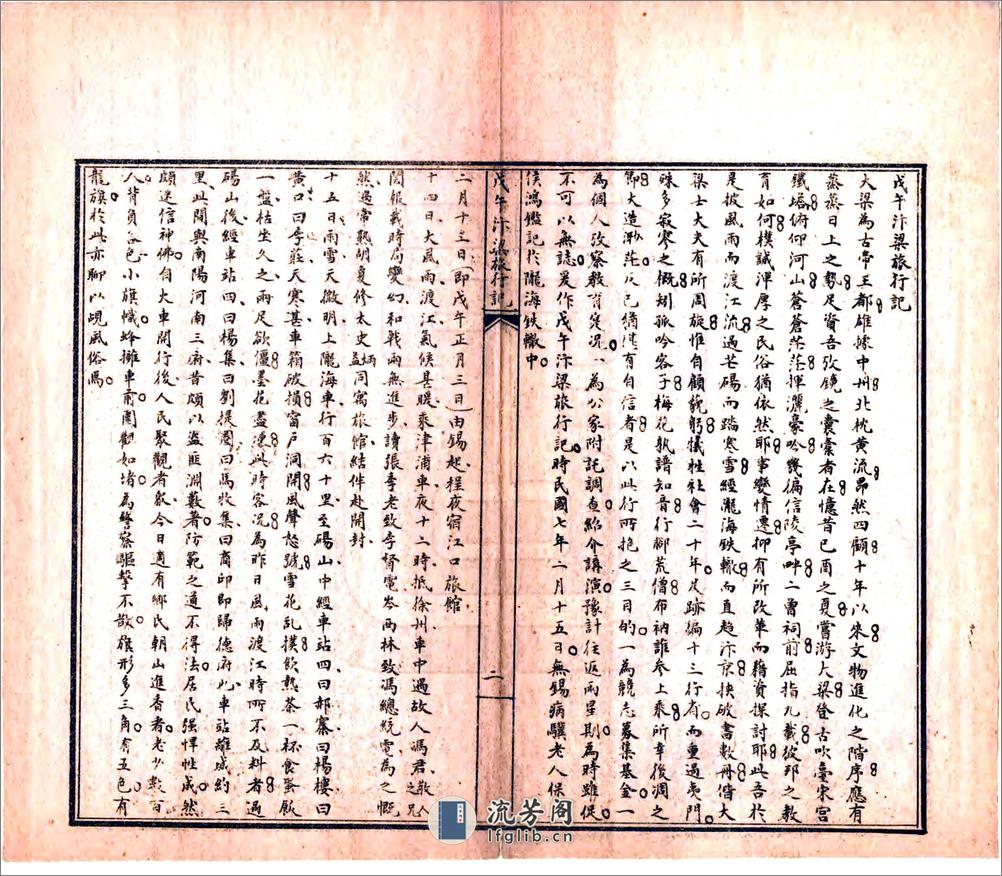 戊午汴梁旅行記
大梁為古帝王都雄據中州北枕黃流昂然四顧十年以來文物進化之階序應有
蒸蒸日上之勢足資吾攷鏡之囊橐者在憶昔己酉之夏嘗游大梁登古吹臺宋宮
鐵塔俯仰河山蒼蒼茫茫揮灑豪吟幾徧信陵亭畔二曾祠前屈指九載彼邦之教
育如何樸誠渾厚之民俗猶依然耶事變情遷抑有所改革而藉資探討耶此吾於
是披風雨而渡江流過芒碭而踏寒雪經隴海鐵轍而直趨汴京挾破書數冊偕大
梁士大夫有所周旋惟自顧貌躬犧牲社會二十年足跡徧十三行省而重過夷門
殊多寂寥之慨矧孤吟客子梅花孰譜知音行腳荒僧布衲誰參上乘所幸後凋之
節大造渺茫人已猶堪有自信者是以此行所抱之三目的一為競志募集基金一
為個人攷察教育寔況一為公家附託調查紹介講演豫計往返兩星期為時雖促
不可以無誌爰作戊午汴梁旅行記時民國七年二月十五日無錫病驥老人保
侯鴻鑑記於隴海鉄轍中
戊午汴梁旅行記
二
二月十三日(即戊午正月三日)由錫起程夜宿江口旅館
十四日大風雨渡江氣候甚暖乘津浦車夜十二時抵徐州車中遇故人馮君敵人之兄
閱報載時局變幻和戰兩無進步讀張季老致李督電岑西林致馮總統電為之慨
然遇常熟胡夏修太史炳益同寓旅館結伴赴開封
十五日雨雪天微明上隴海車行百六十里至碭山中經車站四曰郝寨曰楊樓曰
黃口曰李莊天寒甚車箱破損窗戶洞開風聲怒號雪花亂撲飲熱茶一杯食蛋飯
一盤枯坐久之兩足欲僵墨花盡凍此時客況為昨日風雨渡江時所不及料者過
碭山後經車站四曰楊集曰劉提圈曰馬牧集曰商邱即歸德府也車站離城約三
里此間與南陽河南三府昔頗以盜匪淵藪者防範之道不得法居民強悍性成然
頗迷信神佛自火車開行後人民聚觀者眾今日適有鄉民朝山進香者老少數百
人背負各色小旗幟蜂擁車前圍觀如堵為警察驅擊不散旗形多三角有五色有
龍旗於此亦聊以覘風俗焉
流芳阁
lfglib.cn